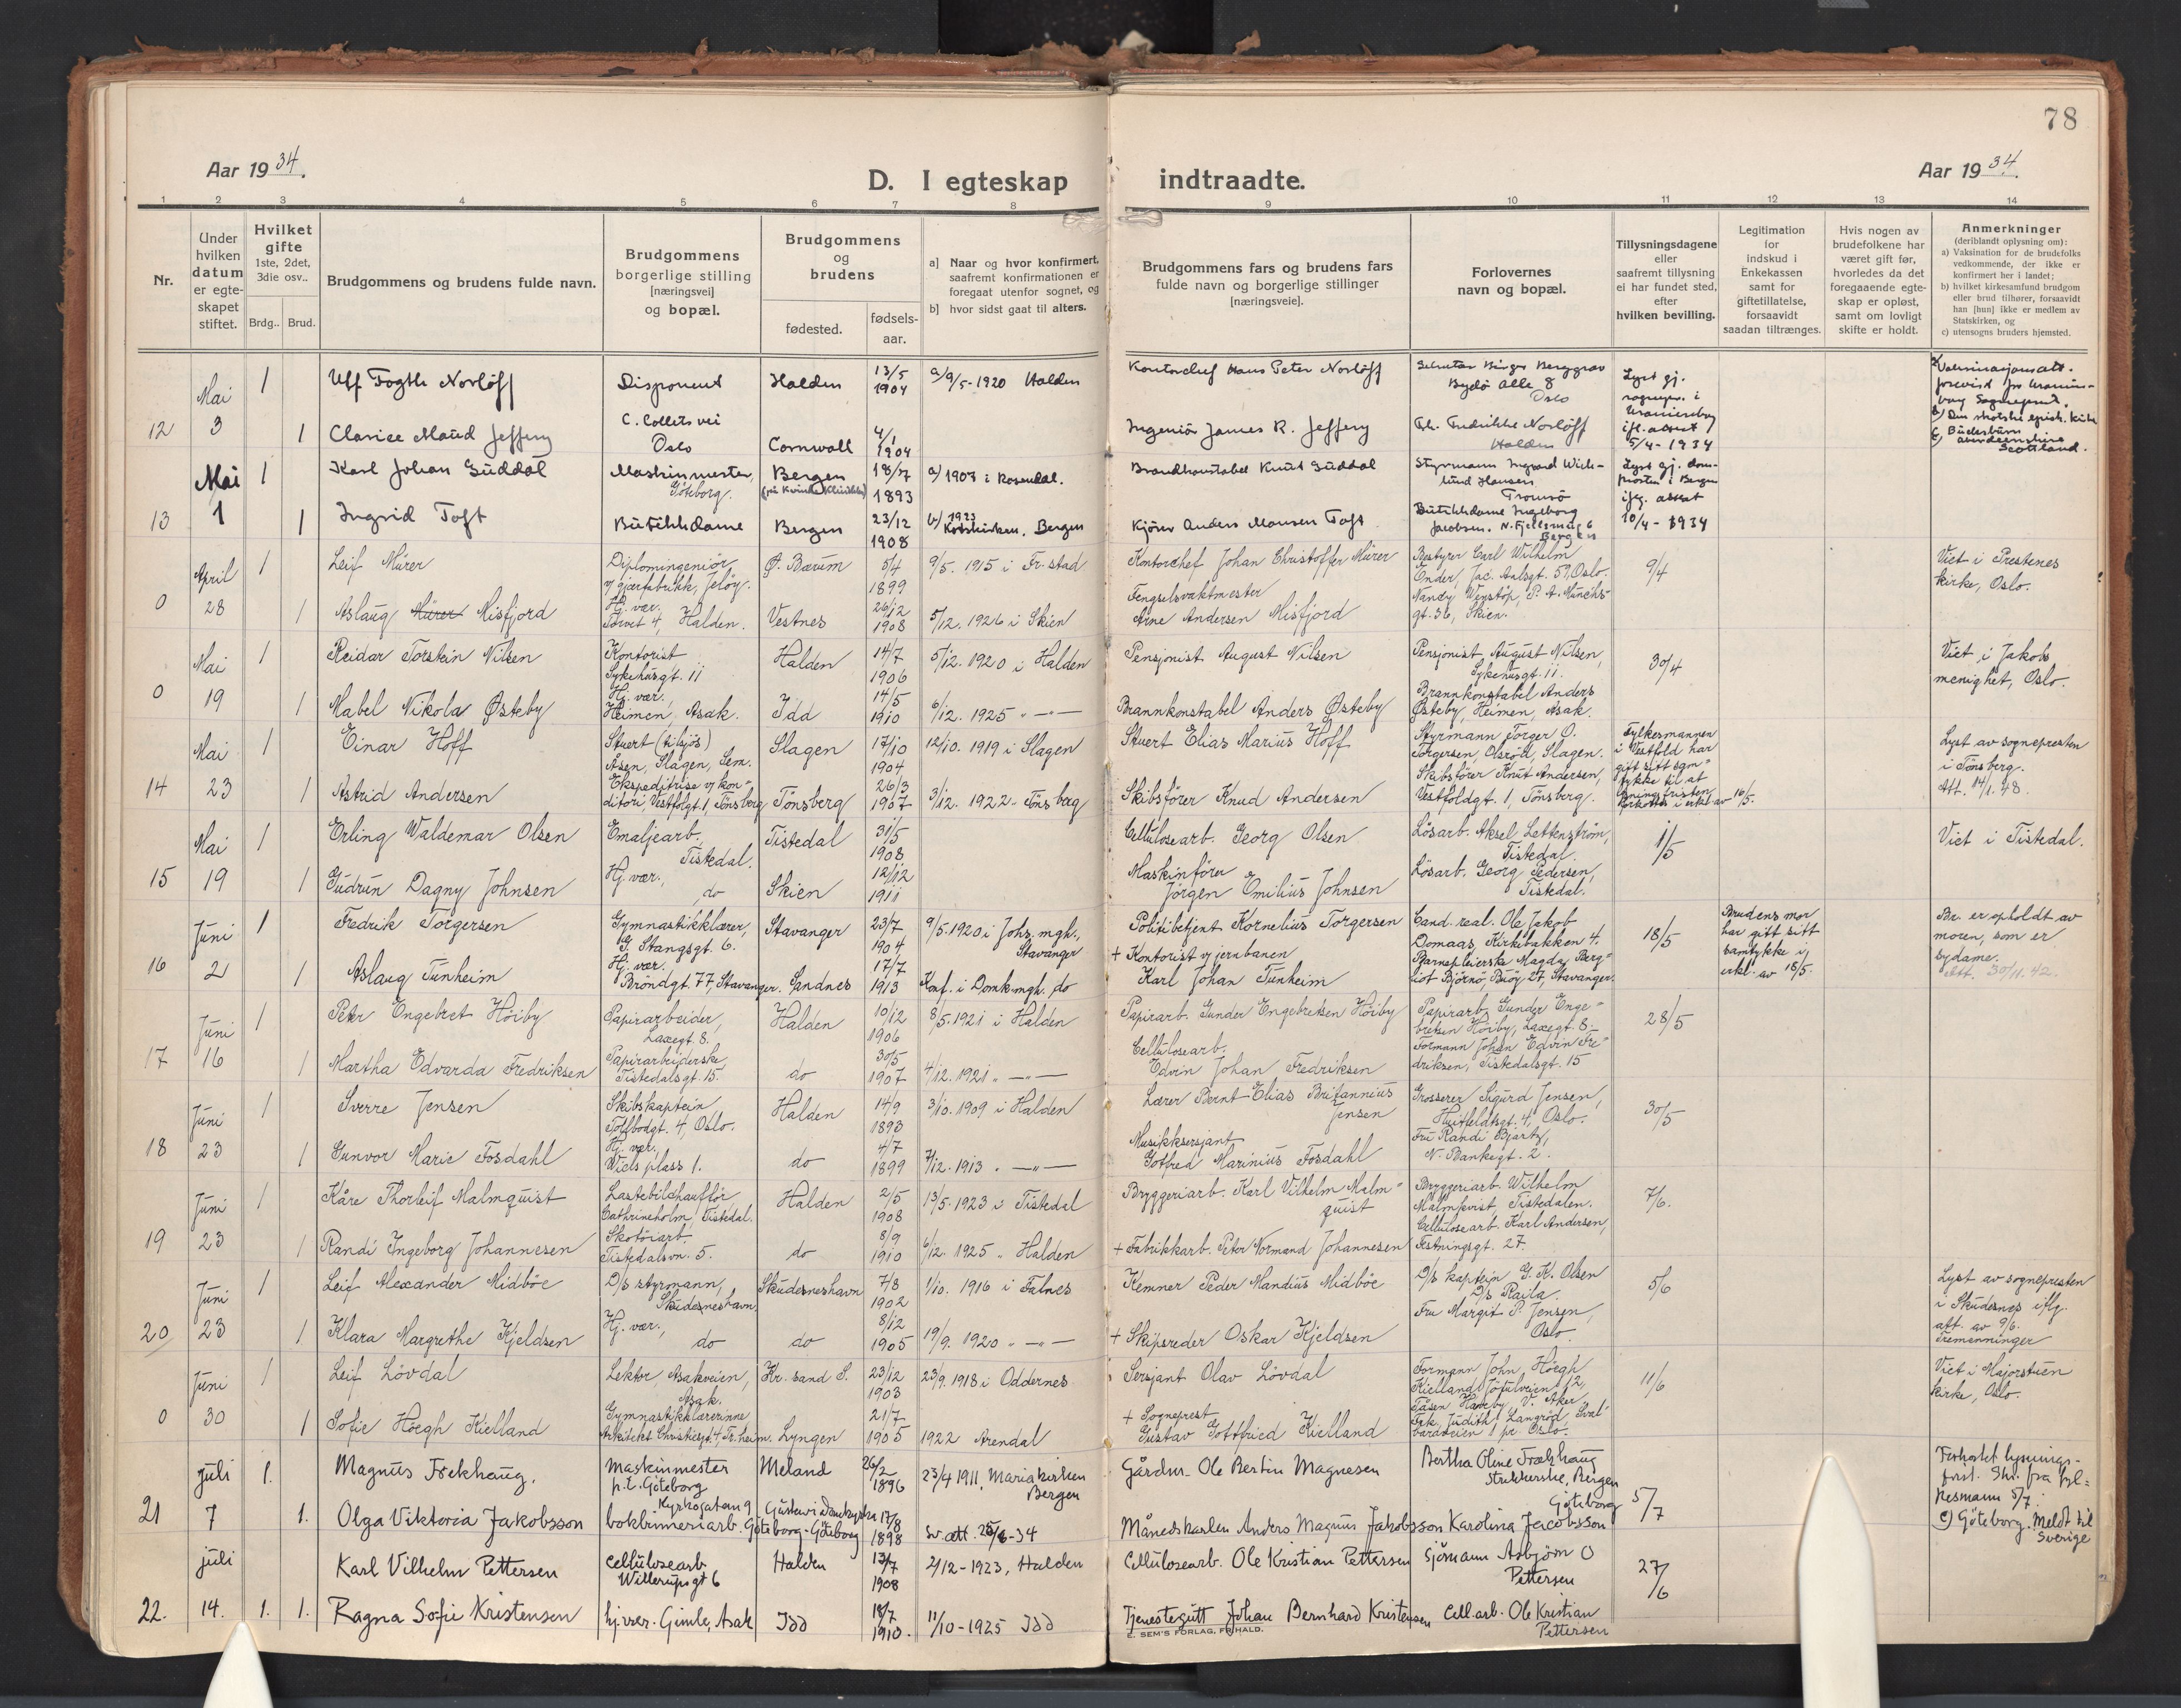 78
Aar 1934.
D. I egteskap indtraadte.
Aar 1934.
1 2 3 4 5 6 7 8 9 10 11 12 13 14
Nr.
Under hvilken datum er egte-skapet stiftet.
Hvilket gifte 1ste, 2det, 3die osv..
Brdg.. Brud.
Brudgommens og brudens fulde navn.
Brudgommens borgerlige stilling [næringsvei] og bopæl.
Brudgommens og brudens
fødested.
fødsels-aar.
a] Naar og hvor konfirmert, saafremt konfirmationen er foregaat utenfor sognet, og
b] hvor sidst gaat til alters.
Brudgommens fars og brudens fars fulde navn og borgerlige stillinger [næringsveie].
Forlovernes navn og bopæl.
Tillysningsdagene eller saafremt tillysning ei har fundet sted, efter hvilken bevilling.
Legitimation for indskud i Enkekassen samt for giftetillatelse, forsaavidt saadan tiltrænges.
Hvis nogen av brudefolkene har været gift før, hvorledes da det foregaaende egte-skap er opløst, samt om lovligt skifte er holdt.
Anmerkninger (deriblandt oplysning om):
a) Vaksination for de brudefolks vedkommende, der ikke er konfirmert her i landet;
b) hvilket kirkesamfund brudgom eller brud tilhører, forsaavidt han [hun] ikke er medlem av Statskirken, og
c) utensogns bruders hjemsted.
Mai 1 Ulf Fogth Norlöff Disponent Halden 13/5 1904 a/9/5-1920 Halden Kontorchef Hans Peter Norlöff Bygdö Alle 8 Oslo Lyst gj.
12 3 1 Clarice Maud Jeffery C. Colletts vei Oslo Cornwall 4/1 1904 Ingeniör James R. Jeffery Norlöff Halden 5/4-1934
c) Aberdeenshire Scottland.
Mai 1 Karl Johan Guddal Maskinmester, Göteborg. Bergen 18/7 1893 a/1907 i Rosendal. Brandkonstabel Knut Guddal Styrmann Hansen Tromsö Lyst gj. dom-prosten i Bergen
13 1 1 Ingrid Toft Butikkdame Bergen 23/12 1908 b/ 1923 Korskirken. Bergen Kjörer Anders Monsen Toft Butikkdame Ingeborg Jacobsen. Bergen ifg. attest 10/4-1934
April 1 Leif Mürer Diplomingeniör v/gjærfabrikk, Jelöy. Ø. Bærum 5/4 1899 9/5. 1915 i Fr.stad Kontorchef Johan Christoffer Mürer Bestyrer Carl Wilhelm Önder, Jac. Aalsgt. 59, Oslo. 9/4 Viet i Prestenes kirke, Oslo.
0 28 1 Aslaug Mürer Misfjord Hj. vær. Torvet 4, Halden. Vestnes 26/12 1908 5/12. 1926 i Skien Fengselsvaktmester Arne Andersen Misfjord Nandy P. A. Münchs gt. 36, Skien.
Mai 1 Reidar Torstein Nilsen Kontorist Sykehusgt. 11 Halden 14/7 1906 5/12. 1920 i Halden Pensjonist August Nilsen Pensjonist August Nilsen, Sykehusgt. 11. 30/4 Viet i Jakobs menighet, Oslo.
0 19 1 Mabel Nikola Østeby Hj. vær. Heimen, Asak. Idd 14/5 1910 6/12. 1925 " —"— Brannkonstabel Anders Østeby Brannkonstabel Anders Østeby, Heimen, Asak.
Mai 1 Einar Hoff Stuert (tilsjös) Åsen, Slagen, Sem. Slagen 17/10 1904 12/10. 1919 i Slagen Stuert Elias Marius Hoff Styrmann Torger O. Torgersen, Olsröd, Slagen. Fylkesmannen i Vestfold har gitt sitt sam-tykke til at Lyst av sognepresten i Tönsberg.
14 23 1 Astrid Andersen Ekspeditrise v/kon-ditori, Vestfoldgt. 1, Tönsberg Tönsberg 26/3 1907 3/12. 1922 " Tönsberg Skibsförer Knud Andersen Skibsförer Knut Andersen, Vestfoldgt. 1, Tönsberg. lysningsfristen forkortes i erkl. av 16/5. Att. 14/1.48.
Mai 1 Erling Waldemar Olsen Emaljearb. Tistedal. Tistedal 31/5 1908 Cellulosearb. Georg Olsen Lösarb. Aksel Lettenström, Tistedal. 1/5 Viet i Tistedal.
15 19 1 Gudrun Dagny Johnsen Hj. vær., do Skien 12/12 1911 Maskinförer Jörgen Emilius Johnsen Lösarb. Georg Pedersen, Tistedal.
Juni 1 Fredrik Torgersen Gymnastikklærer, G. Stangsgt. 6. Stavanger 23/7 1904 9/5.1920 i Johs. mgh., Stavanger Politibetjent Kornelius Torgersen Cand. real. Ole Jakob Domaas, Kirkebakken 4. 18/5 Brudens mor har gitt sitt samtykke i erkl. av 18/5. Br. er opholdt av moren, som er sydame.
16 2 1 Aslaug Tunheim Hj. vær. Bröndgt. 77, Stavanger. Sandnes 17/7 1913 Konf. i Domk.mgh. do + Kontorist v/jernbanen Karl Johan Tunheim Barnepleierske Magda Berg-liot Björnö, Buöy 27, Stavanger. Att. 30/11.42.
Juni 1 Peter Engebret Höiby Papirarbeider, Laxegt. 8. Halden 10/12 1906 8/5.1921 i Halden Papirarb. Gunder Engebretsen Höiby Papirarb. Gunder Enge-bretsen Höiby, Laxegt. 8. 28/5
17 16 1 Martha Edvarda Fredriksen Papirarbeiderske Tistedalsgt. 15. do 30/5 1907 4/12. 1921 " —"— Cellulosearb. Edvin Johan Fredriksen Formann Johan Edvin Fre-driksen, Tistedalsgt. 15
Juni 1 Sverre Jensen Skibskaptein Tollbodgt. 4, Oslo. Halden 14/9 1893 3/10. 1909 i Halden Lærer Bernt Elias Britannius Jensen Grosserer Sigurd Jensen, Huitfeldtsgt. 4, Oslo. 30/5
18 23 1 Gunvor Marie Fosdahl Hj. vær. Wiels plass 1. do 4/7 1899 7/12. 1913 " —"— Musikksersjant Gotfred Marinius Fosdahl Fru Randi Bjartz, N. Bankegt. 2.
Juni 1 Kåre Thorleif Malmquist Lastebilchauffør Cathrineholm, Tistedal. Halden 2/5 1908 13/5. 1923 i Tistedal Bryggeriarb. Karl Vilhelm Malm-quist Bryggeriarb. Wilhelm Malmkvist, Tistedalen. 7/6.
19 23 1 Randi Ingeborg Johannesen Skotöiarb. Tistedalsvn. 5. do 8/9 1910 6/12. 1925 " Halden + Fabrikkarb. Peter Normand Johannesen Cellulosearb. Karl Andersen, Festningsgt. 27.
Juni 1 Leif Alexander Midböe D/s styrmann, Skudesneshavn. Skudesneshavn 7/8 1902 1/10. 1916 i Falnes Kemner Peder Mandius Midböe D/s kaptein G. K. Olsen D/s Raila. 5/6 Lyst av sognepresten i Skudesnes iflg. att. av 9/6.
20 23 1 Klara Margrethe Kjeldsen Hj. vær., do do 8/12 1905 19/9. 1920 " —"— + Skipsreder Oskar Kjeldsen Fru Margit P. Jensen, Oslo. Tremenninger
Juni 1 Leif Lövdal Lektor, Asakveien, Asak. Kr.sand S. 23/12 1903 23/9. 1918 i Oddernes Sersjant Olav Lövdal Formann John Höegh Kielland, Jötulveien 12, Tåsen Haveby, V. Aker 11/6 Viet i Majorstuen kirke, Oslo.
0 30 1 Sofie Höegh Kielland Gymnastikklærerinne Arkitekt Christiesgt. 4, Tr.heim. Lyngen 21/7 1905 1922 Arendal + Sogneprest Gustav Gottfried Kielland Frk. Judith Langröd, Sval-bardveien 1 pr. Oslo.
juli 1. Magnus Frekhaug. maskinmester p.t. Göteborg Meland 26/2 1896 23/4 1911, Mariakirken Bergen Gårdm. Ole Bertin Magnesen Bertha Oline Frekhaug Strikkerske, Bergen 5/7 Forkortet lysnings-frist. Skr. fra fyl-kesmann 5/7.
21 7 1. Olga Viktoria Jakobsson Kyrkogatan 9 bokbinneriarb. Göteborg Göteborg 17/8 1898 Sv. att. 25/6-34 Månedskarlen Anders Magnus Jakobsson Karolina Jacobsson Göteborg c) Göteborg. Meldt til Sverige
juli Karl Vilhelm Pettersen cellulosearb Willerupsgt 6 Halden 13/7 1908 2/12-1923, Halden Cellulosearb. Ole Kristian Pettersen Sjömann Asbjörn O Pettersen 27/6
22. 14. 1. 1. Ragna Sofie Kristensen hj.vær. Gimle, Asak Idd 18/7 1910. 11/10-1925 Idd Tjenestegutt Johan Bernhard Kristensen Cell.arb. Ole Kristian Pettersen
E. SEM'S FORLAG, FR.HALD.